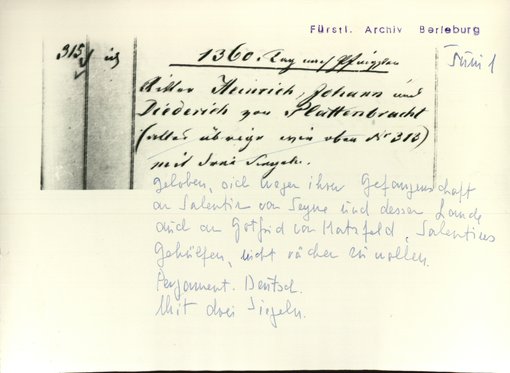 Fürstl. Archiv Berleburg
315
1360. Tag nach Pfingsten
Juni 1
Ritter Heinrich, Johann und
Diederich von Plattenbracht
(alles übrige wie oben No 313)
mit drei Siegeln.
geloben, sich wegen ihrer Gefangenschaft
an Salentin von Seyne und dessen Lande
auch an Gotfrid von Hatzfeld, Salentins
Gehülfen, nicht rächen zu wollen.
Pergament. Deutsch.
Mit drei Siegeln.